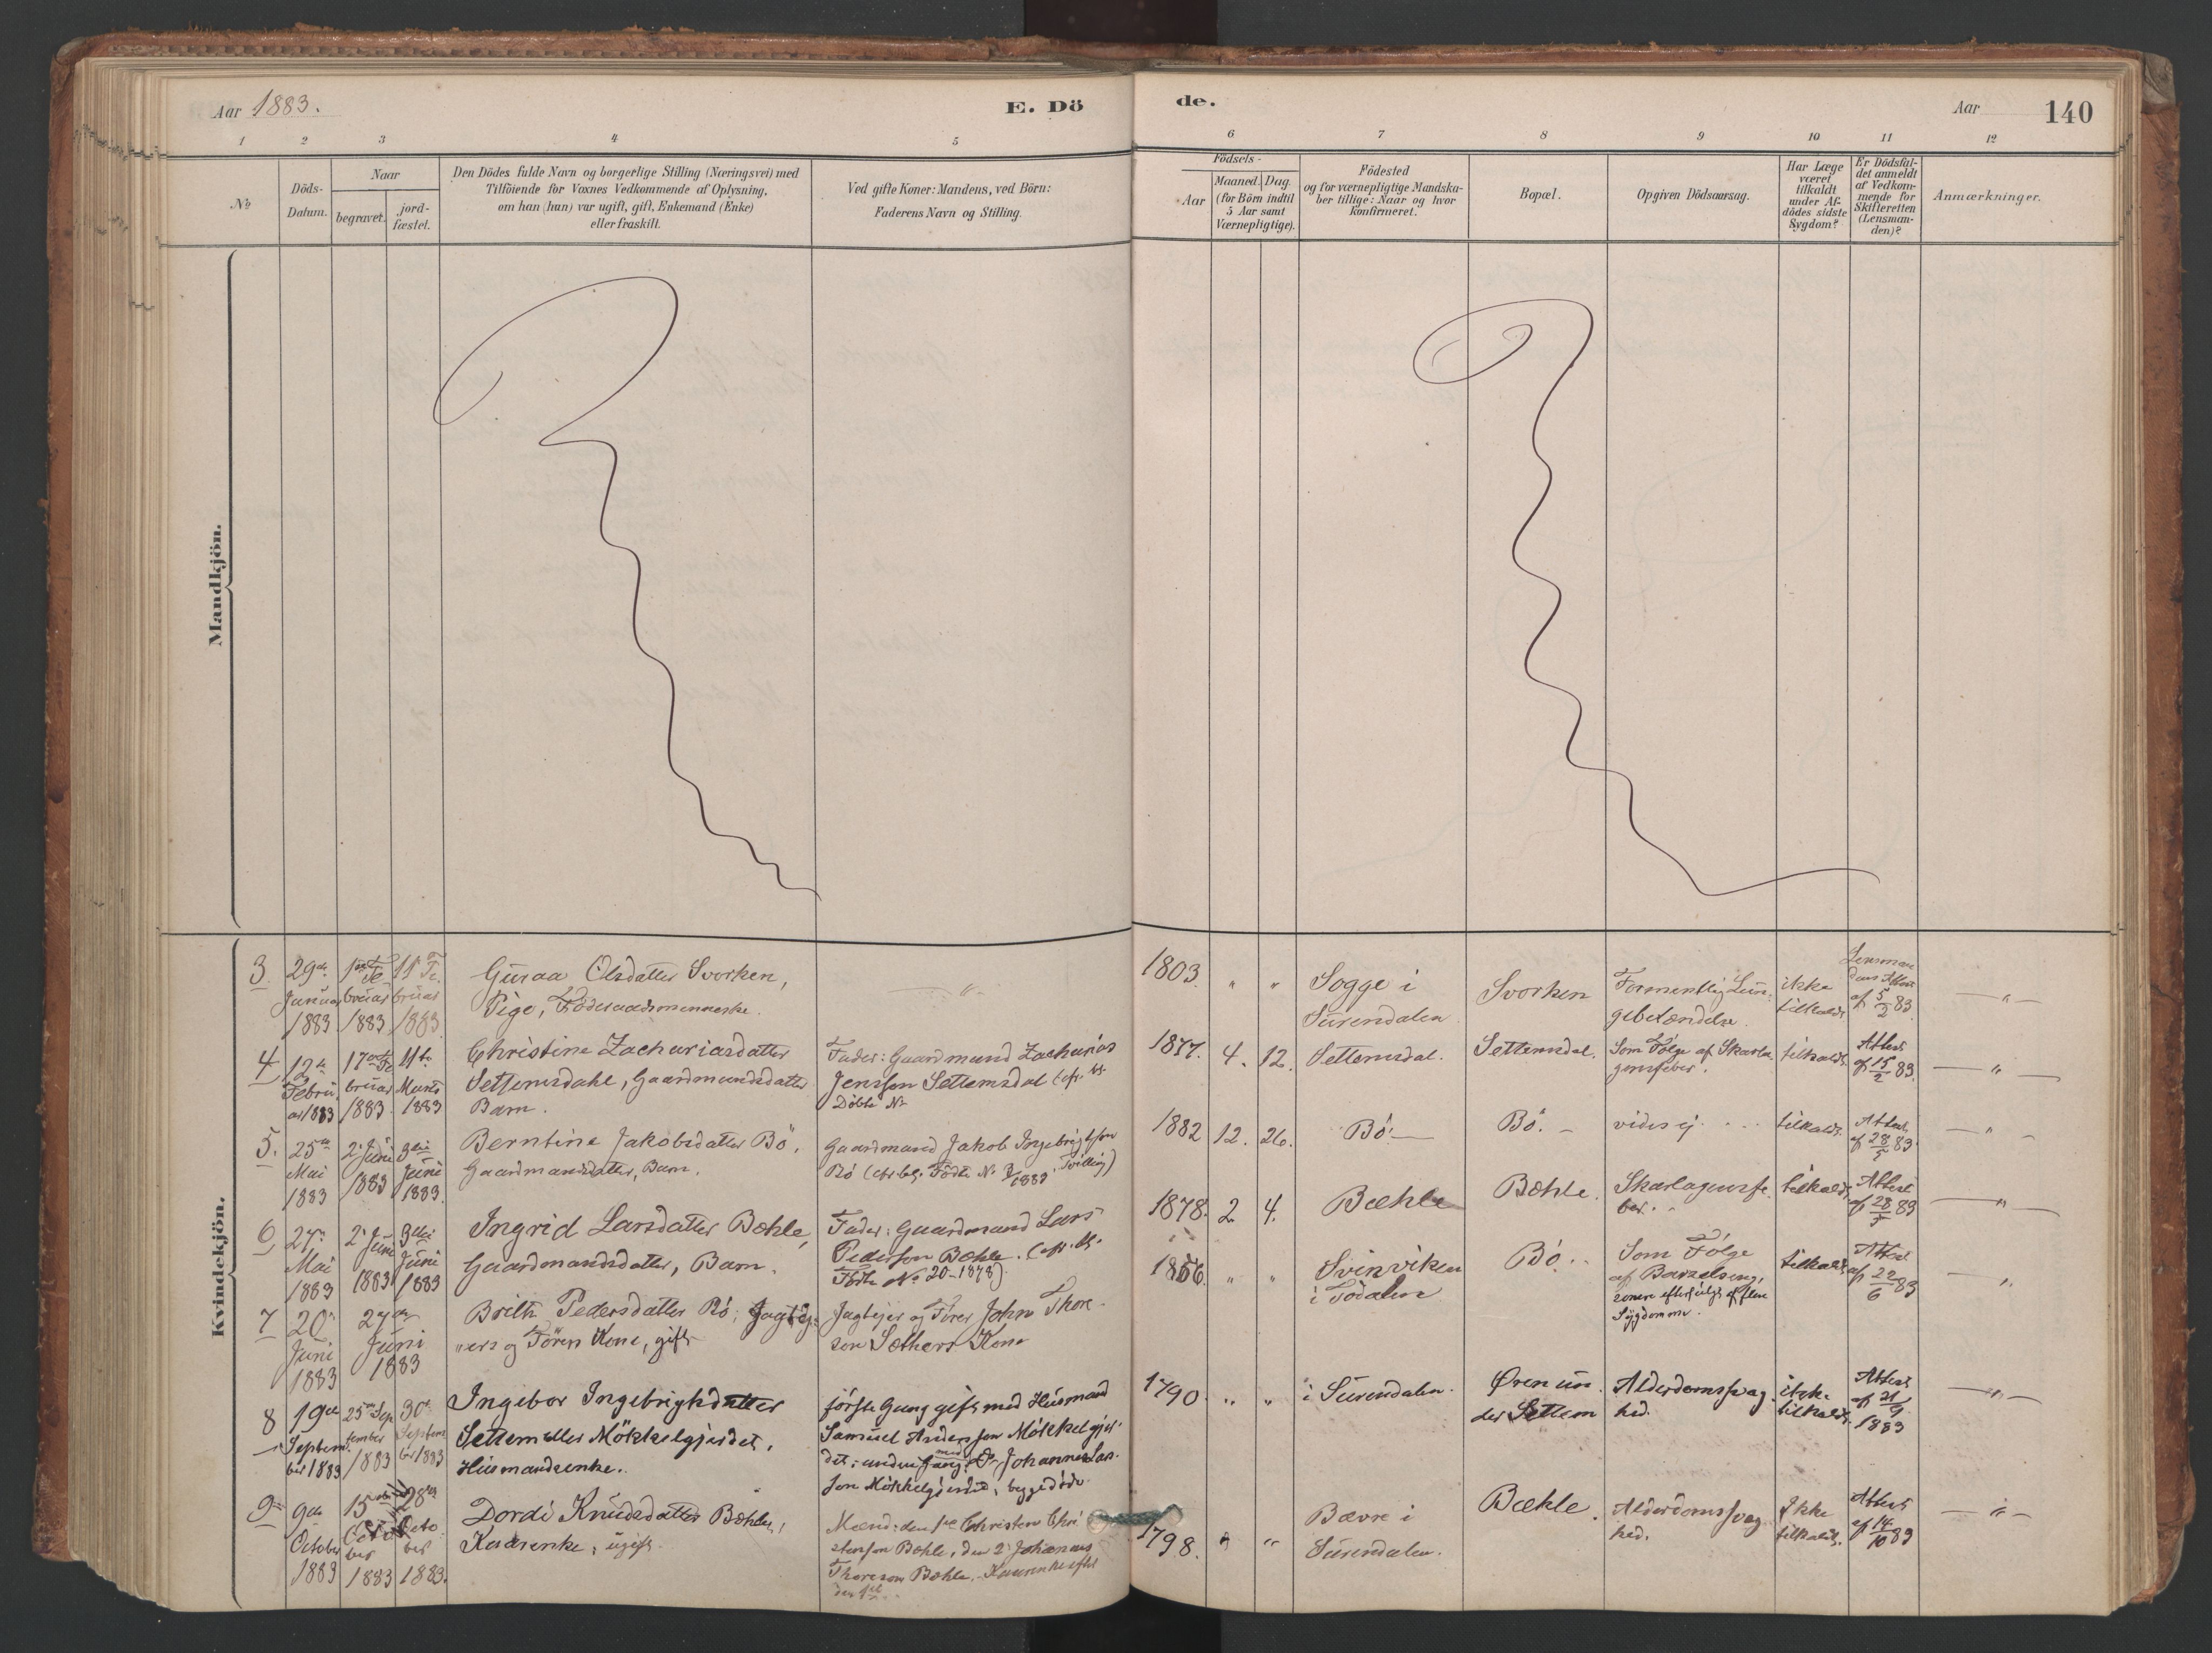 Aar 1883.
E. Dö
de.
Aar
140
1 2 3 4 5 6 7 8 9 10 11 12
No
Döds-
Datum.
Naar
begravet.
jord-
fæstet.
Den Dödes fulde Navn og borgerlige Stilling (Næringsvei) med
Tilföiende for Voxnes Vedkommende af Oplysning,
om han (hun) var ugift, gift, Enkemand (Enke)
eller fraskilt.
Ved gifte Koner: Mandens, ved Börn:
Faderens Navn og Stilling.
Födsels-
Aar
Maaned.
Dag.
(for Börn indtil
5 Aar samt
Værnepligtige).
Födested
og for værnepligtige Mandska-
ber tillige: Naar og hvor
konfirmeret.
Bopæl.
Opgiven Dödsaarsag.
Har Læge
været
tilkaldt
under Af-
dödes sidste
Sygdom?
Er Dödsfal-
det anmeldt
af Vedkom-
mende for
Skifteretten
(Lensman-
den)?
Anmærkninger.
Mandkjön.
Kvindekjön.
3.
29de
Januar
1883
1ste Fe
bruar
1883
11te Fe
bruar
1883
Guraa Olsdatter Svorken,
Pige, Föderaadsmenneske.
— " —
1803. " "
Sogge i
Surendalen
Svorken
Formentlig Lun-
gebetændelse.
ikke
tilkaldt
Lensman
dens Attest
af 5/2 83
— " —
4
12te
Febru
ar 1883
17de Fe
bruar
1883
11te
Marts
1883
Christine Zachariasdatter
Settemsdahl, Gaardmandsdatter
Barn.
Fader: Gaardmand Zacharias
Jensson Settemsdal (cfr. bl.
Döbte No
1877. 4. 12.
Settemsdal.
Settemsdal.
Som Fölge af Skarla-
gensfeber.
tilkaldt
Attest
af 15/2 83.
— " —
5.
25de
Mai
1883
2. Juni
1883
3die
Juni
1883.
Berntine Jakobsdatter Bö,
Gaardmandsdatter, Barn.
Gaardmand Jakob Ingebrigtsson
Bö (cfr. bl. Födte No 3/1883, Tvilling)
1882 12. 26.
Bö. —
Bö. —
vides ej
tilkaldt
Attest
af 28/5 83
— " —
6
27de
Mai
1883
2. Juni
1883
3die
Juni
1883
Ingrid Larsdatter Bæhle,
Gaardmandsdatter, Barn.
Fader: Gaardmand Lars
Pedersson Bæhle. (cfr. bl.
Födte No 20 - 1878)
1878. 2. 4.
Bæhle
Bæhle.
Skarlagensfe-
ber.
tilkaldt
Attest
af 28/5 83
— " —
7
20de
Juni
1883
27de
Juni
1883
Brith Pedersdatter Bö, Jagtej-
ers og Förers Kone, gift
Jagtejer og Förer John Thore-
son Sæthers Kone
1856. " "
Svinviken
i Todalen
Bö.
Som Fölge
af Barselseng,
senere efterfulgt af flere
Sygdomme.
tilkaldt
Attest
af 22/6 83
"
8
19de
Septem-
ber 1883
25de Sep
tember
1883
30te
Septem
ber 1883
Ingebor Ingebrigtsdatter
Settem eller Mökkelgjerdet,
Husmandsenke.
förste Gang gift med Husmand
Samuel Andersson Mökkelgjer-
det; anden Gang med Johannes Lar-
son Mökkelgjerdet, begge döde.
1790. " "
i Surendalen.
Øren un-
der Settem
Alderdomssvag-
hed.
ikke
tilkaldt.
Attest
af 21/9
1883
— " —
9
9de
October
1883
15de
Octo
ber
1883
28de
Octo
ber
1883.
Dordi Knudsdatter Bæhle,
Kaarenke, ugift.
Mænd: den 1ste Christen Chri-
stensson Bæhle, den 2. Johannes
Thoreson Bæhle, - Kaarenke efter
den 1ste
1798. " "
Bævre i
Surendalen.
Bæhle.
Alderdomssvag-
hed.
Ikke
tilkaldt.
Attest
af 14/10 83
— " —